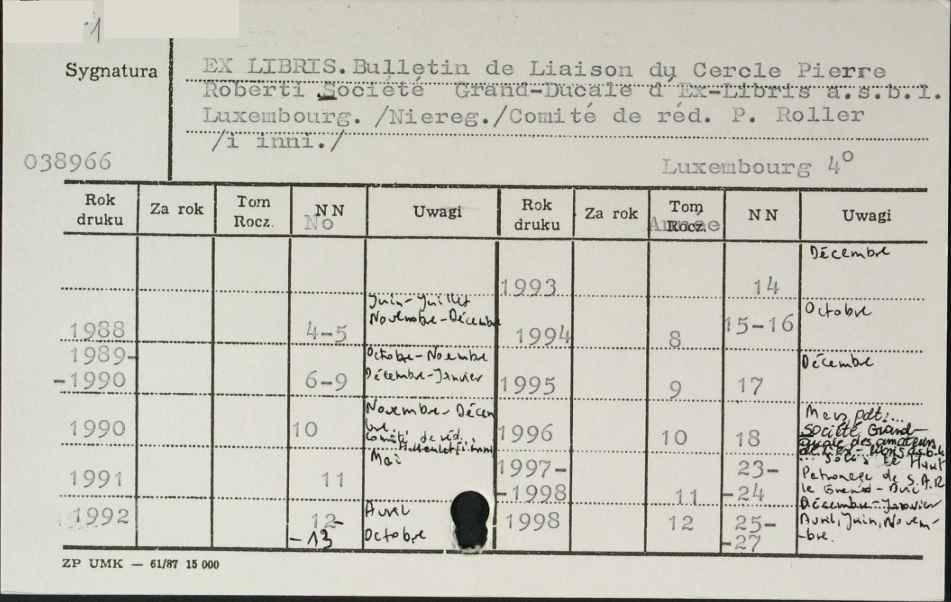 1
Sygnatura
EX LIBRIS. Bulletin de Liaison du Cercle Pierre
Roberti Société Grand-Ducale d'Ex-Libris a.s.b.l.
Luxembourg. /Niereg./Comité de réd. P. Roller
/i inni./
038966
Luxembourg 4°
Rok druku Za rok Tom Rocz. NN No Uwagi Rok druku Za rok Tom Rocz. NN Uwagi
1993 14 Décembre
1988 4-5 Juin-Juillet
Novembre-Décembre
1994 8 15-16 Octobre
1989-
-1990 6-9 Octobre-Novembre
Décembre-Janvier
1995 9 17 Décembre
1990 10 Novembre-Décem
bre
Comité de réd.
1996 10 18 Mars pdt:...
Société Grand-
ducale des amateurs
1991 11 Mai
1997-
-1998 11 23-
-24 Haut
Patronage de S.A.R
le Grand-Duc
Décembre-Janvier
1992 12-
-13 Avril
Octobre
1998 12 25-
-27 Avril, Juin, Novem-
-bre.
ZP UMK — 61/87 15 000